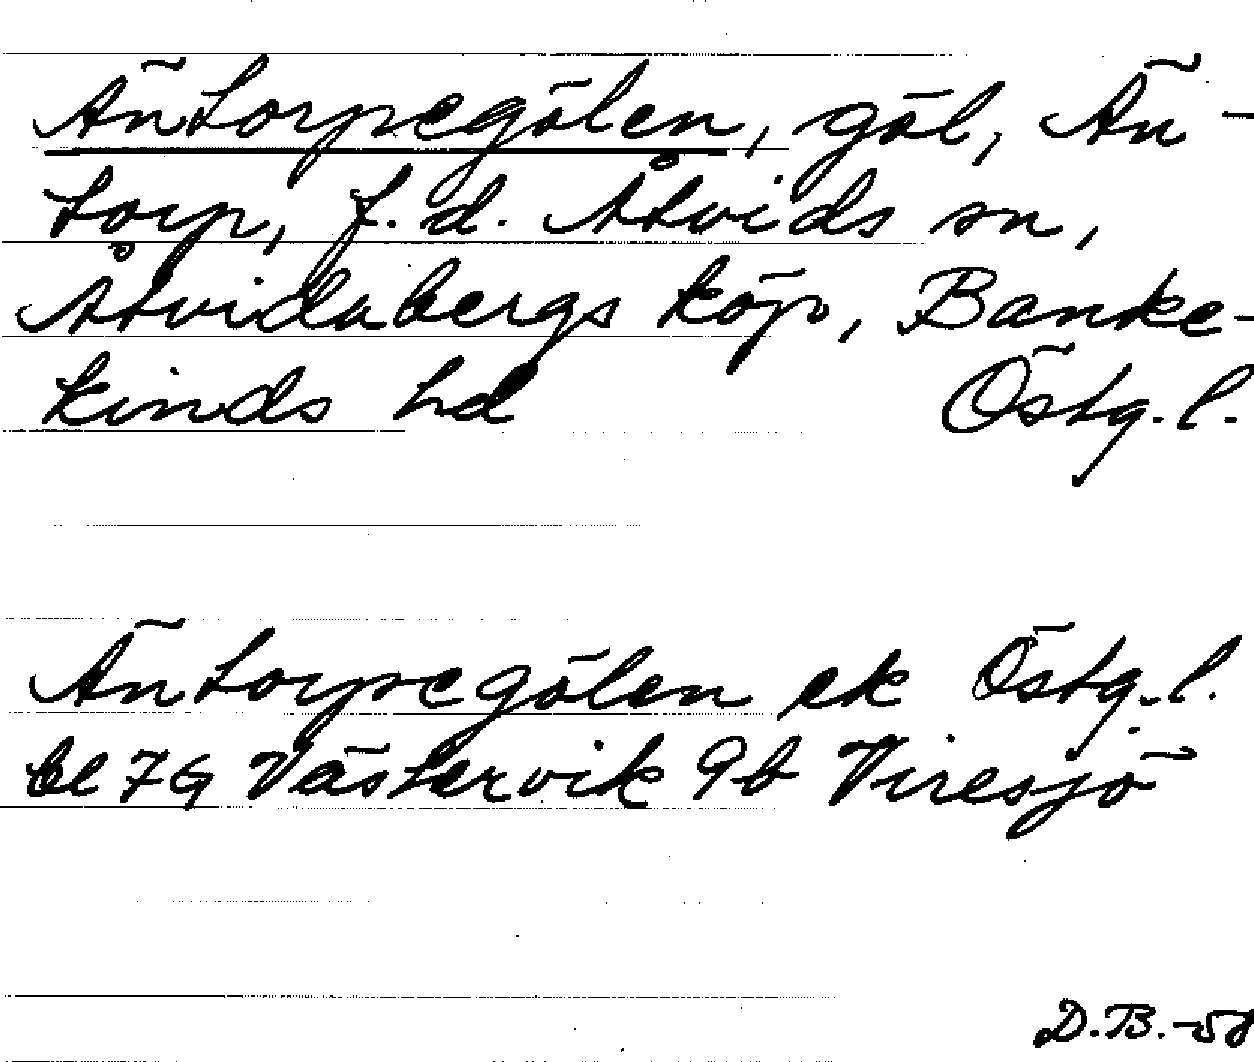 Äntorpegölen, göl, Än-
torp, f.d. Åtvids sn,
Åtvidabergs köp, Banke-
kinds hd Östg.l.
Äntorpegölen ek Östg.l.
bl 7G Västervik 9b Viresjö
D.B.-58